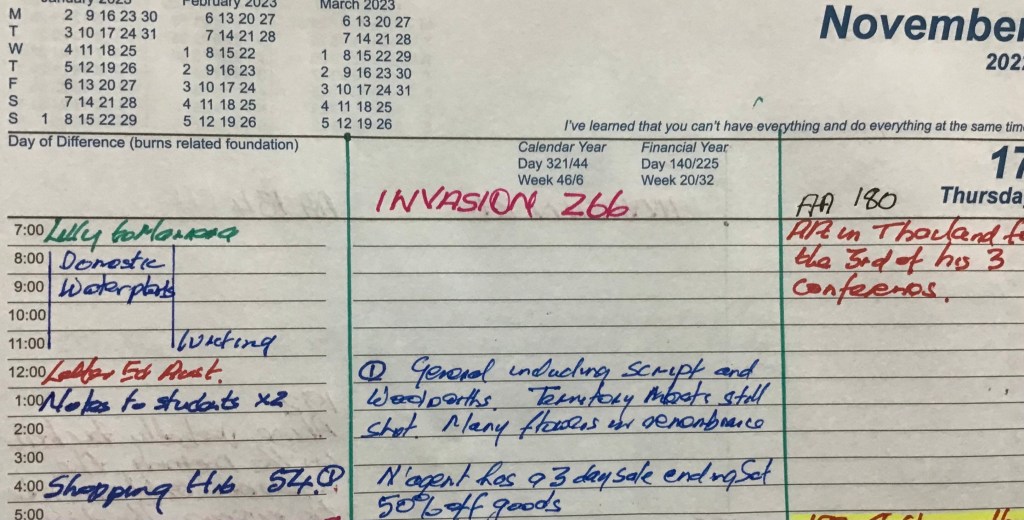 January 2023 February 2023 March 2023
M 2 9 16 23 30 6 13 20 27 6 13 20 27
T 3 10 17 24 31 7 14 21 28 7 14 21 28
W 4 11 18 25 1 8 15 22 1 8 15 22 29
T 5 12 19 26 2 9 16 23 2 9 16 23 30
F 6 13 20 27 3 10 17 24 3 10 17 24 31
S 7 14 21 28 4 11 18 25 4 11 18 25
S 1 8 15 22 29 5 12 19 26 5 12 19 26
November
202
I've learned that you can't have everything and do everything at the same tim
Day of Difference (burns related foundation)
Calendar Year Financial Year
Day 321/44 Day 140/225
Week 46/6 Week 20/32
17
Thursda
INVASION 266
AA 180
7:00 Lilly to
8:00 Domestic
9:00 Waterplants
10:00
11:00 Writing
12:00 Letter Ed Aust.
1:00 Notes to students x2
2:00
3:00
4:00 Shopping Hub 54. ①
5:00
① General including Script and
Woolworths. Territory Meats still
shut. Many flowers in remembrance
N'agent has a 3 day sale ending Sat
50% off goods
in Thailand
the 3rd of his 3
conferences.